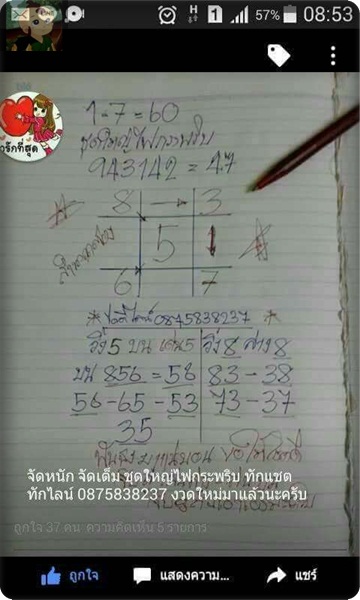 57% 08:53
1-7=60
ชุดใหญ่ไฟกระพริบ
943142=47
รักที่สุด
8 → 3
5 1
6 7
0875838237
วิ่ง 5 บน เน้น 5 วิ่ง 8 ล่าง 8
บน 856 = 58 83-38
56-65-53 73-37
35
จัดหนัก จัดเต็มชุดใหญ่ไฟกระพริบ ทักแชด
ทักไลน์ 0875838237 งวดใหม่มาแล้วนะครับ
ถูกใจ 37 คน ความคิดเห็น 5 รายการ
ถูกใจ แสดงความ... แชร์